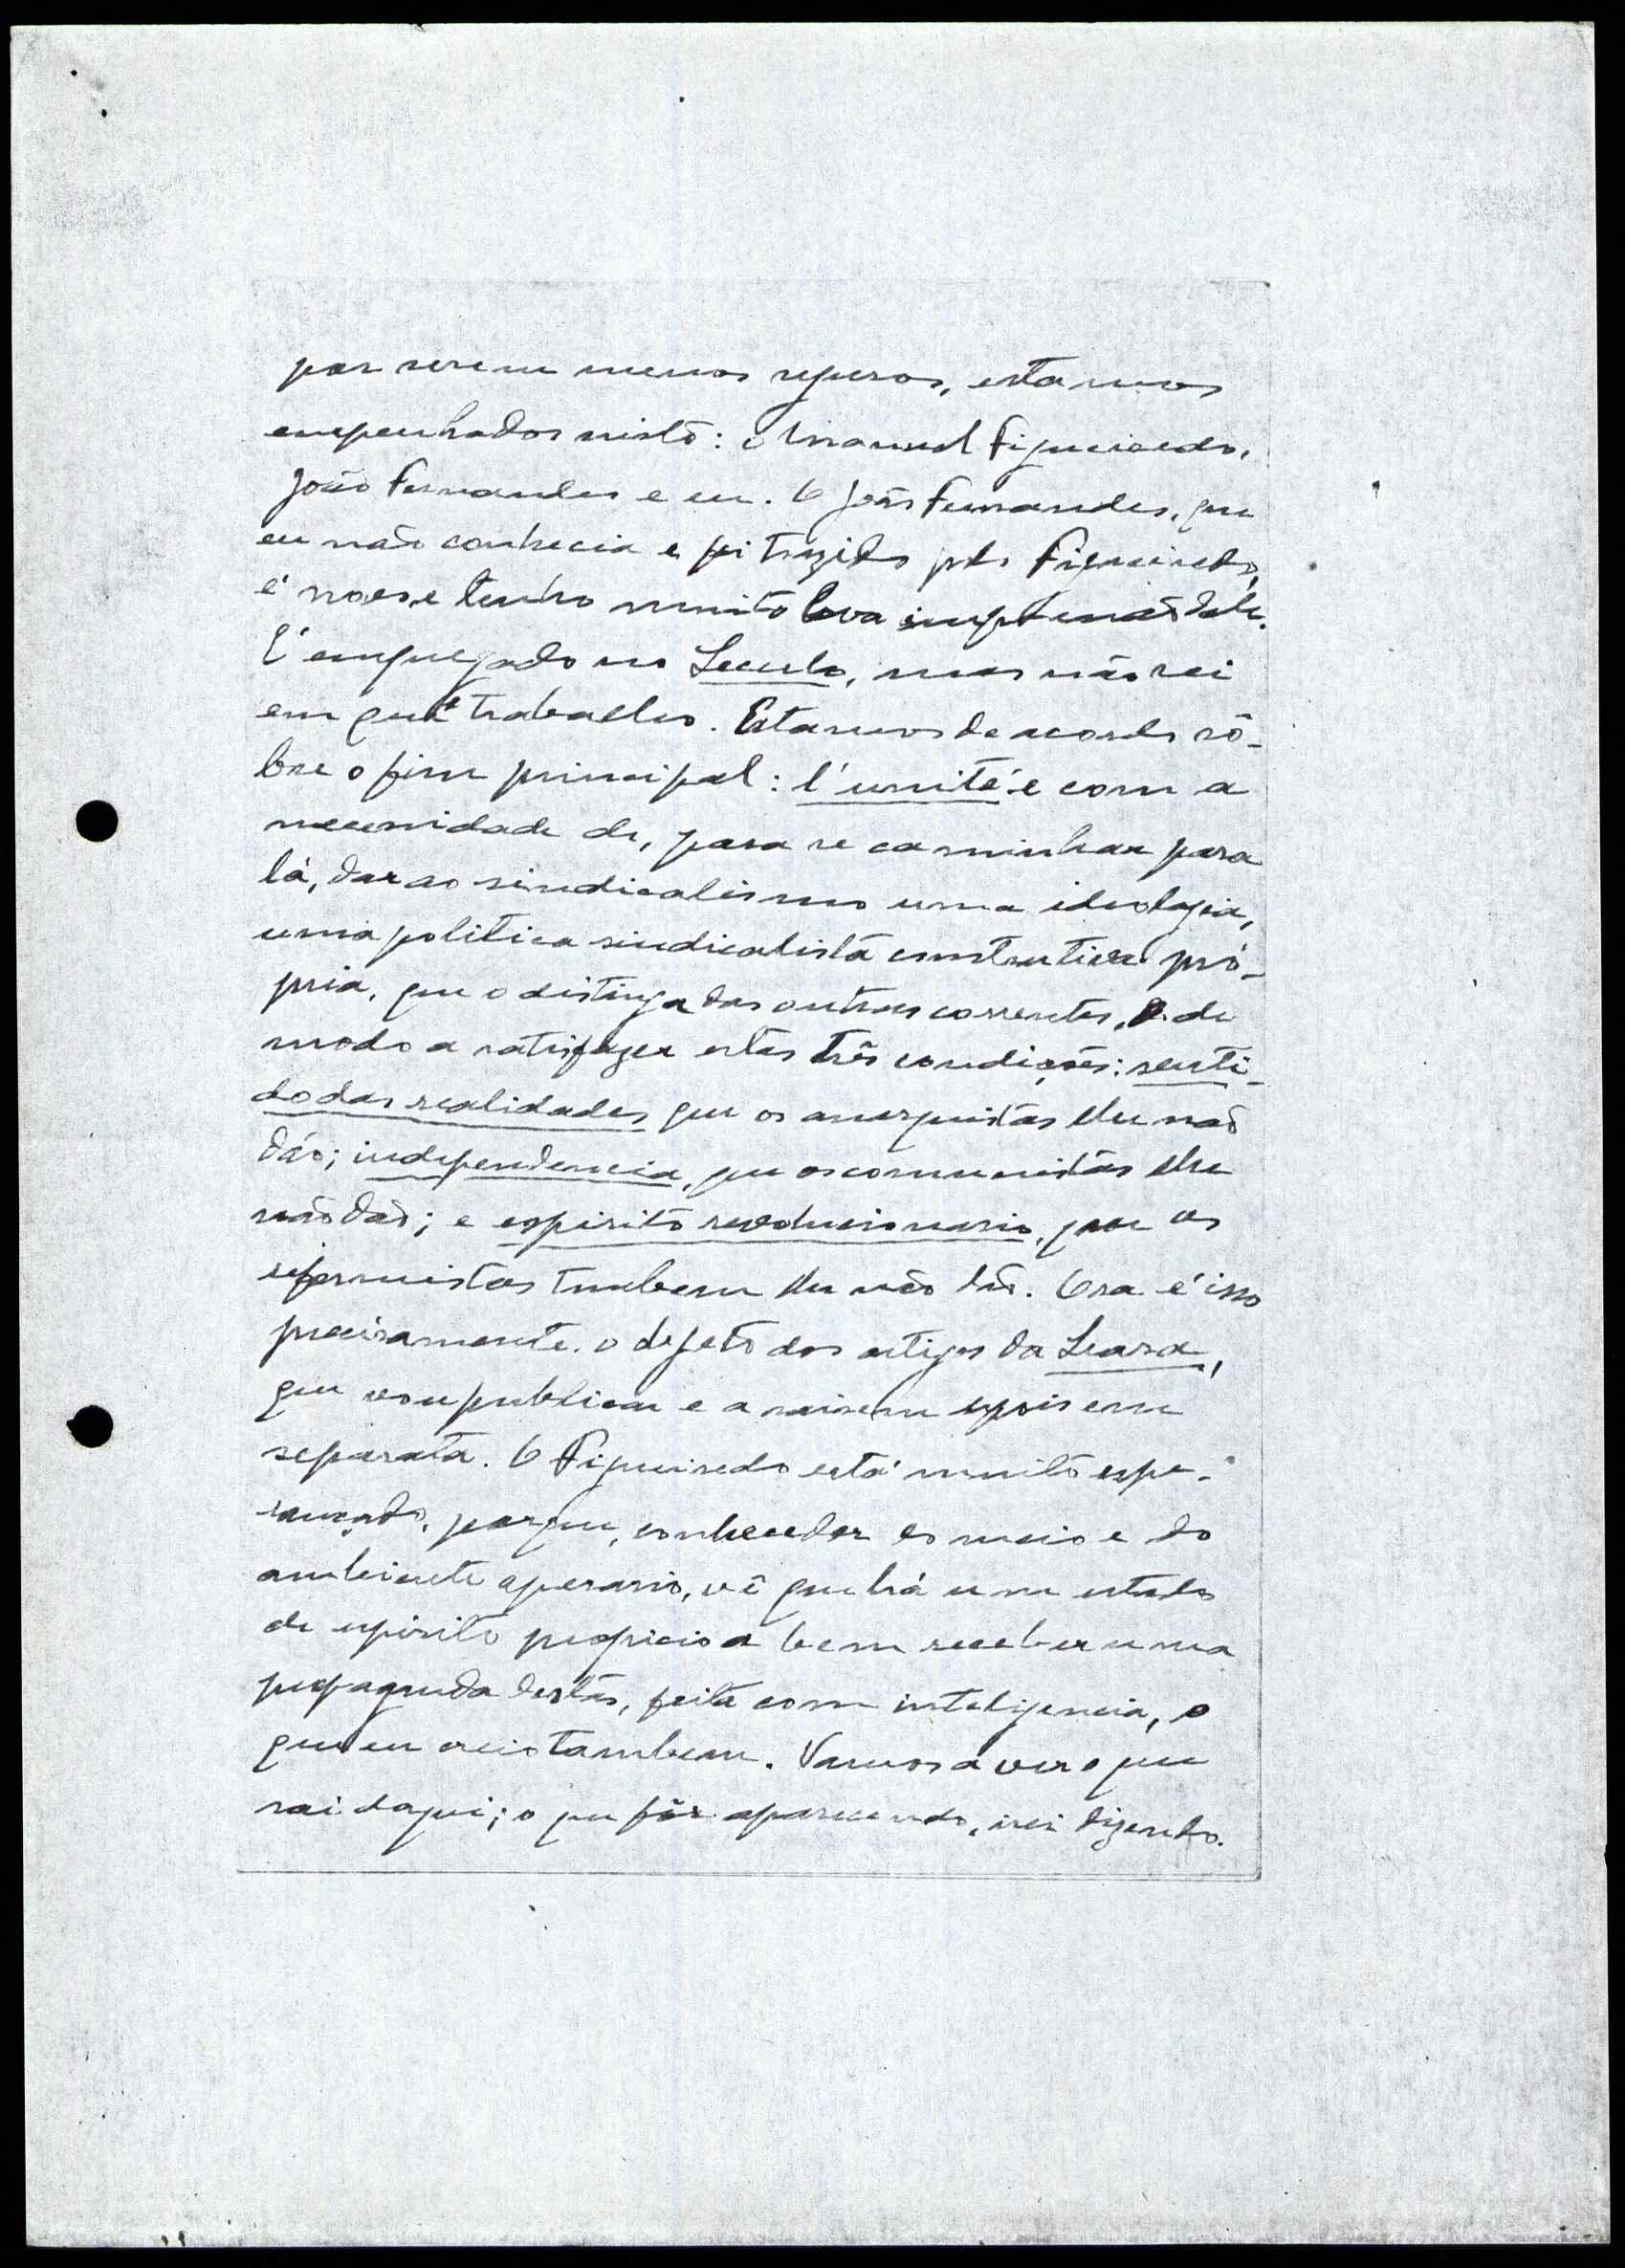 por serem menos seguros, estamos
empenhados nisto: o Manuel Figueiredo,
João Fernandes e eu. O João Fernandes, que
eu não conhecia e foi trazido pelo Figueiredo,
é novo, e tenho muito boa impressão dele.
É empregado no Seculo, mas não sei
em que trabalho. Estamos de acordo sô-
bre o fim principal: l'unité: e com a
necessidade de, para se caminhar para
lá, dar ao sindicalismo uma ideologia,
uma politica sindicalista constructiva pró-
pria, que o distinga das outras correntes, e de
modo a satisfazer estas três condições: senti-
do das realidades que os anarquistas lhe não
dão; independencia, que os comunistas lhe
não dão; e espirito revolucionario, que os
reformistas tambem lhe não dão. Ora é isso
precisamente o objeto dos artigos da Seara,
que vou publicar e a sairem depois em
separata. O Figueiredo está muito espe-
rançado, porque, conhecedor do meio e do
ambiente operario, vê que há um estado
de espirito propicio a bem receber uma
propaganda destas, feita com inteligencia, o
que eu creio tambem. Vamos a ver o que
sai daqui; o que fôr aparecendo, irei dizendo.